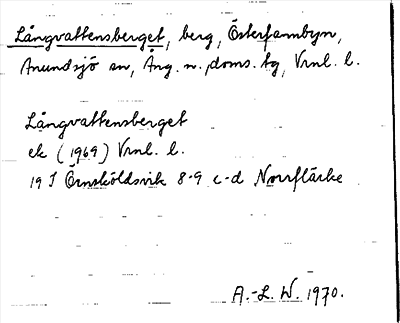 Långvattensberget, berg, Österfambyn,
Anundsjö sn, Ång. n. doms. tg, Vrnl. l.
Långvattensberget
ek (1969) Vrnl. l.
19 I Örnsköldsvik 8-9 c-d Norrflärke
A.-L. W. 1970.